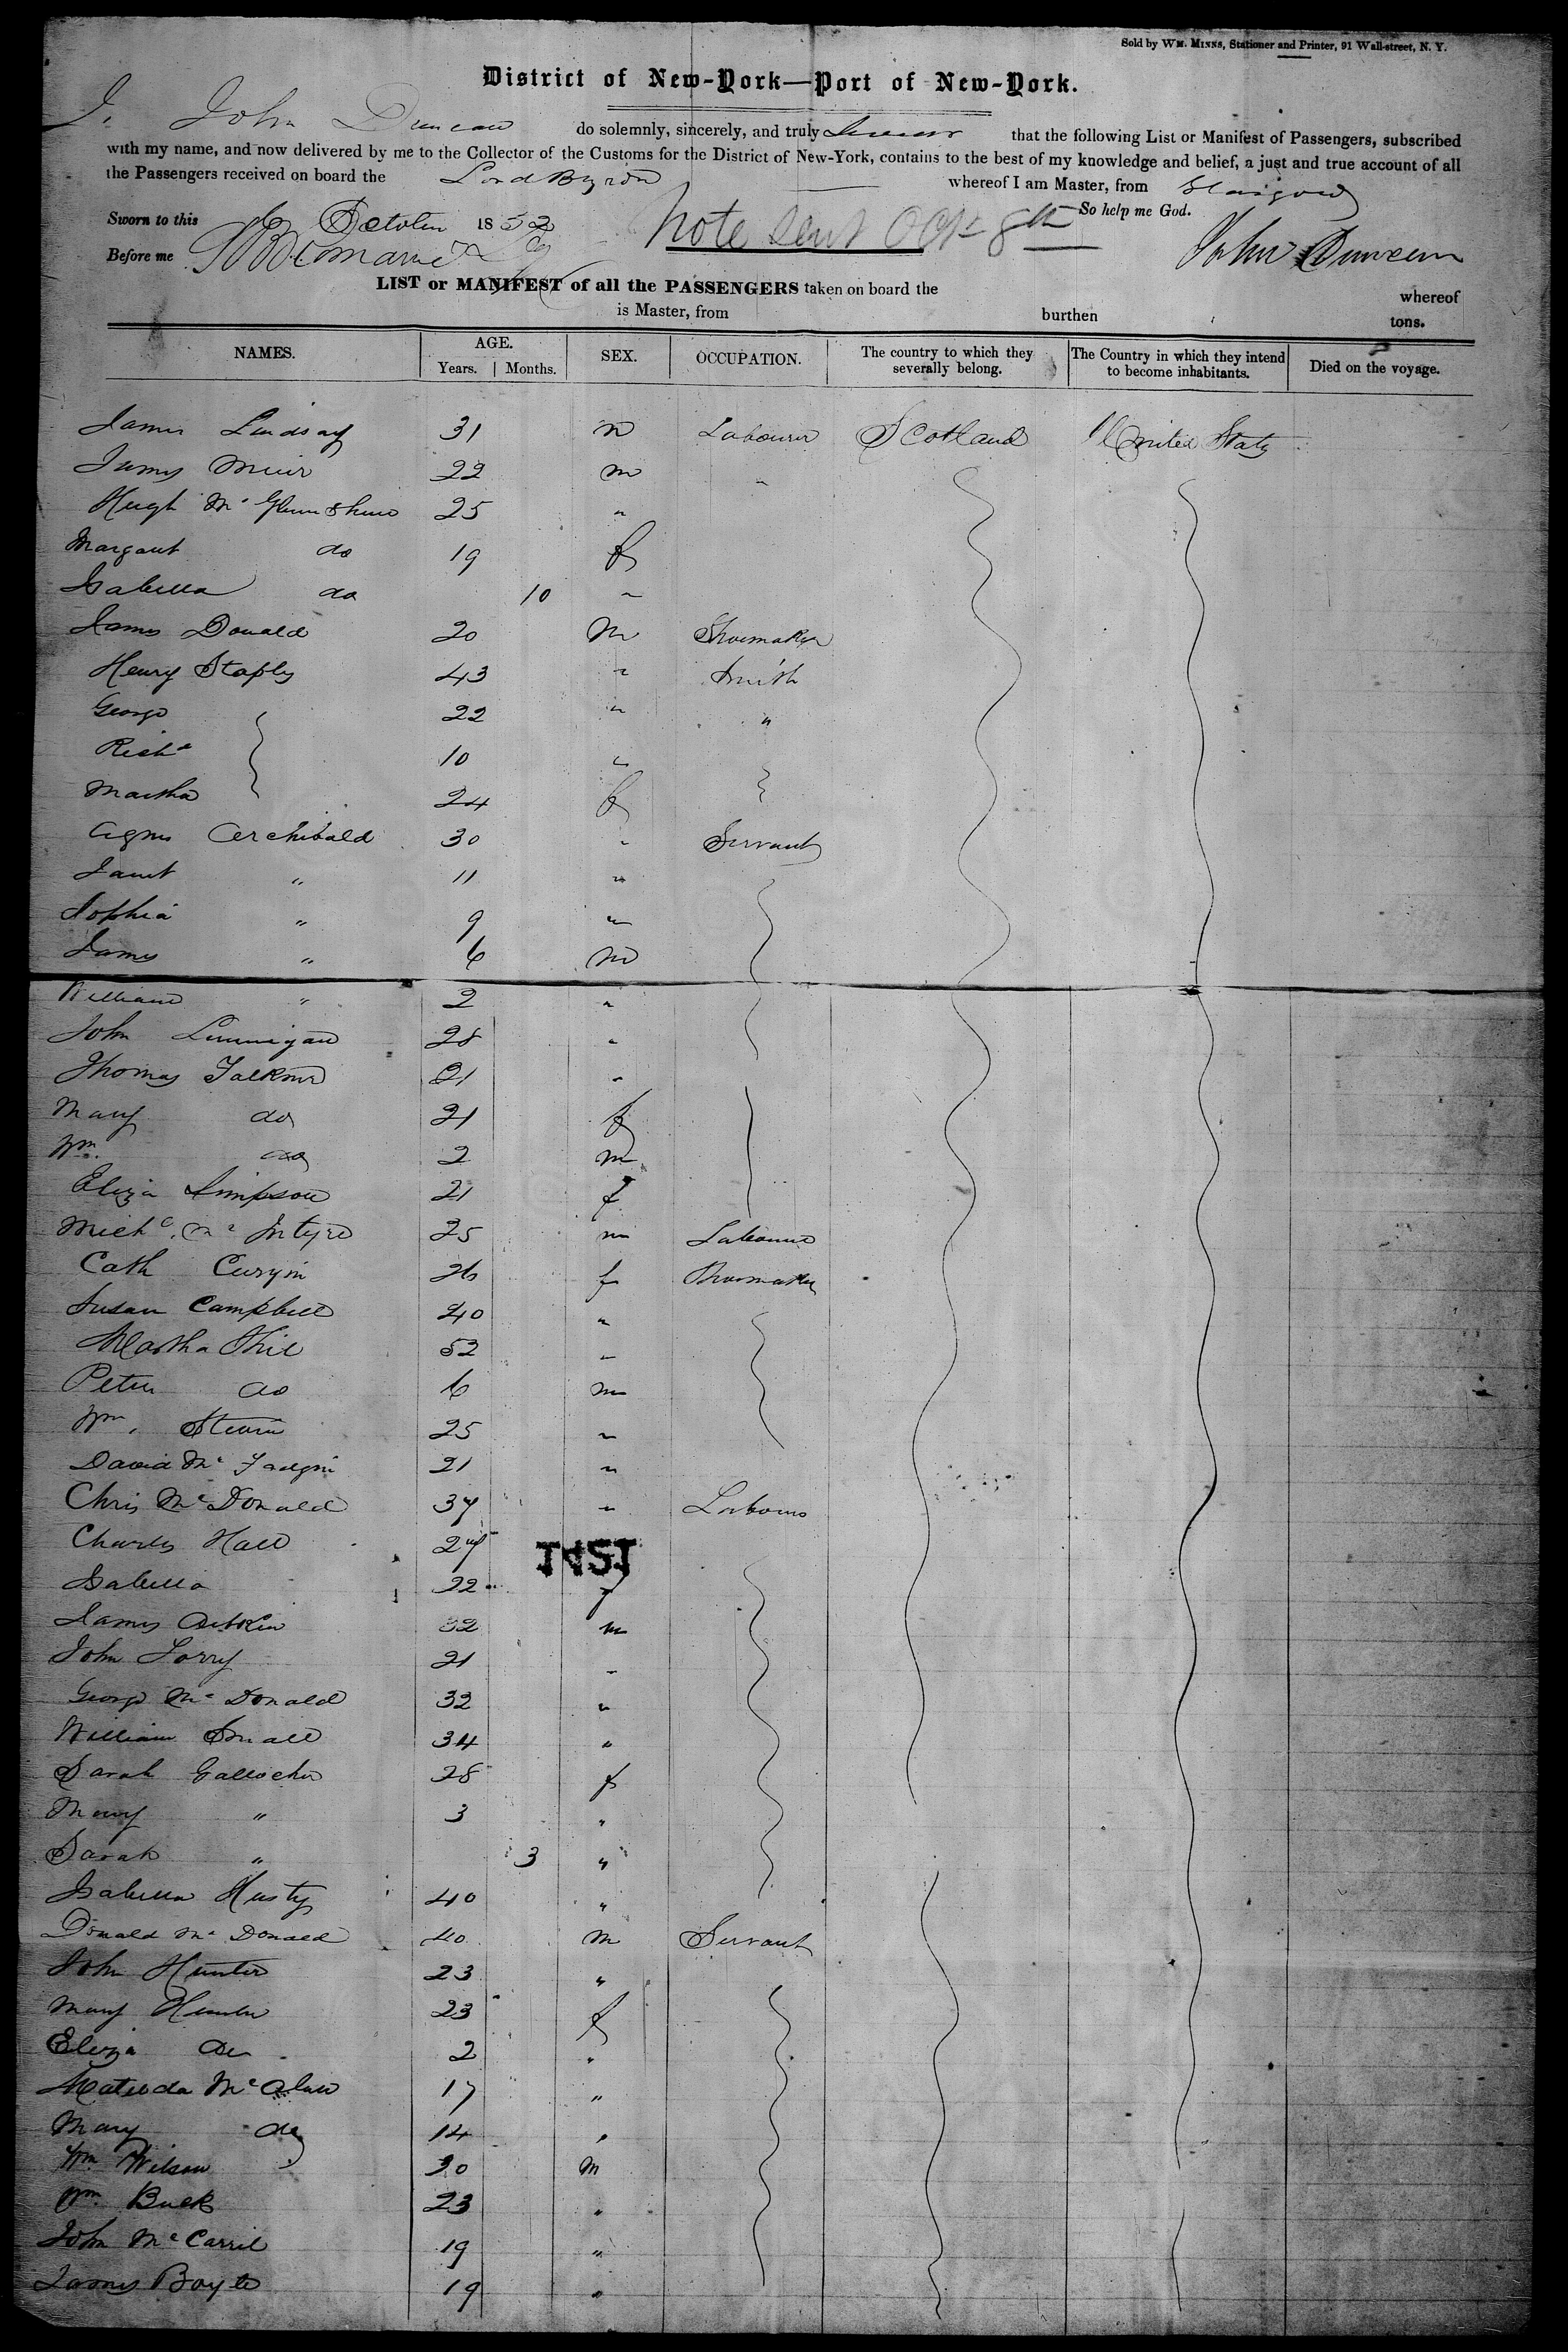 Sold by WM. MINNS, Stationer and Printer, 91 Wall-street, N. Y.
District of New-York—Port of New-York.
I, John Duncan do solemnly, sincerely, and truly swear that the following List or Manifest of Passengers, subscribed
with my name, and now delivered by me to the Collector of the Customs for the District of New-York, contains to the best of my knowledge and belief, a just and true account of all
the Passengers received on board the Lord Byron whereof I am Master, from Glasgow
Sworn to this October 1852 So help me God.
Note sent Oct 8th
Before me John Duncan
LIST or MANIFEST of all the PASSENGERS taken on board the whereof
is Master, from burthen tons.
NAMES. AGE. Years. Months. SEX. OCCUPATION. The country to which they severally belong. The Country in which they intend to become inhabitants. Died on the voyage.
James Lindsay 31 m Labourer Scotland United States
James Muir 22 m "
Hugh Mc 25 "
Margaret do 19 f
Isabella do 10 "
James Donald 20 m Shoemaker
Henry Staples 43 " Smith
George 22 " "
Richd 10 "
Martha 24 f
Agnes Archibald 30 " Servant
Janet " 11 "
Sophia " 9 "
James " 6 m
William " 2 "
John 28 "
Thomas Falkner 21 "
Mary do 21 f
Wm. do 2 m
Eliza Simpson 21 f
Michl. Mc Intyre 25 m Labourer
Cath 26 f Shoemaker
Susan Campbell 40 "
Martha 52 "
Peter do 6 m
Wm. 25 "
David Mc 21 "
Chris McDonald 37 " Labourer
Charles Hall 27
Isabella 22 f
James Aitken 32 m
John Lorry 21 "
George McDonald 32 "
William Small 34 "
Sarah Gallocher 28 f
Mary " 3 "
Sarah " 3 "
Isabella Husty 40 "
Donald McDonald 40 m Servant
John Hunter 23 "
Mary Hunter 23 f
Eliza Do 2 "
Matilda Mc 17 "
Mary do 14 "
Wm Wilson 20 m
Wm. Buck 23 "
John McCarril 19 "
James Boyle 19 "